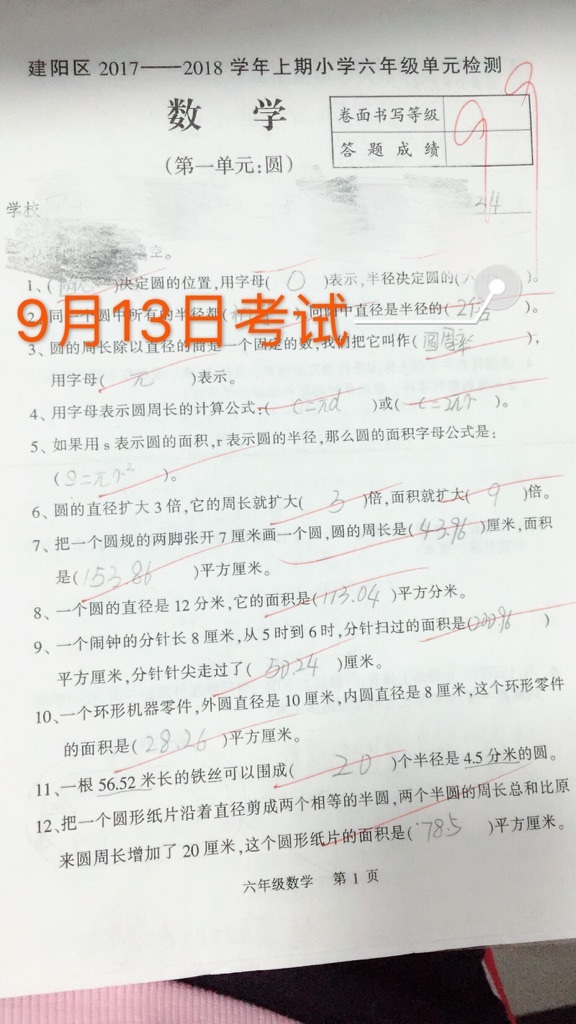 建阳区 2017——2018 学年上期小学六年级单元检测
数 学
卷面书写等级
答题成绩
99
(第一单元:圆)
学校
34
空。
1、( )决定圆的位置,用字母( O )表示,半径决定圆的( )。
9月13日考试
2、同一个圆中所有的半径都( ),同圆中直径是半径的( 2倍 )。
3、圆的周长除以直径的商是一个固定的数,我们把它叫作( 圆周率 ),
用字母( π )表示。
4、用字母表示圆周长的计算公式:( C=πd )或( C=2πr )。
5、如果用 s 表示圆的面积,r 表示圆的半径,那么圆的面积字母公式是:
( S=πr² )。
6、圆的直径扩大 3 倍,它的周长就扩大( 3 )倍,面积就扩大( 9 )倍。
7、把一个圆规的两脚张开 7 厘米画一个圆,圆的周长是( 43.96 )厘米,面积
是( 153.86 )平方厘米。
8、一个圆的直径是 12 分米,它的面积是( 113.04 )平方分米。
9、一个闹钟的分针长 8 厘米,从 5 时到 6 时,分针扫过的面积是( 200.96 )
平方厘米,分针针尖走过了( 50.24 )厘米。
10、一个环形机器零件,外圆直径是 10 厘米,内圆直径是 8 厘米,这个环形零件
的面积是( 28.26 )平方厘米。
11、一根 56.52 米长的铁丝可以围成( 20 )个半径是 4.5 分米的圆。
12、把一个圆形纸片沿着直径剪成两个相等的半圆,两个半圆的周长总和比原
来圆周长增加了 20 厘米,这个圆形纸片的面积是( 78.5 )平方厘米。
六年级数学 第 1 页